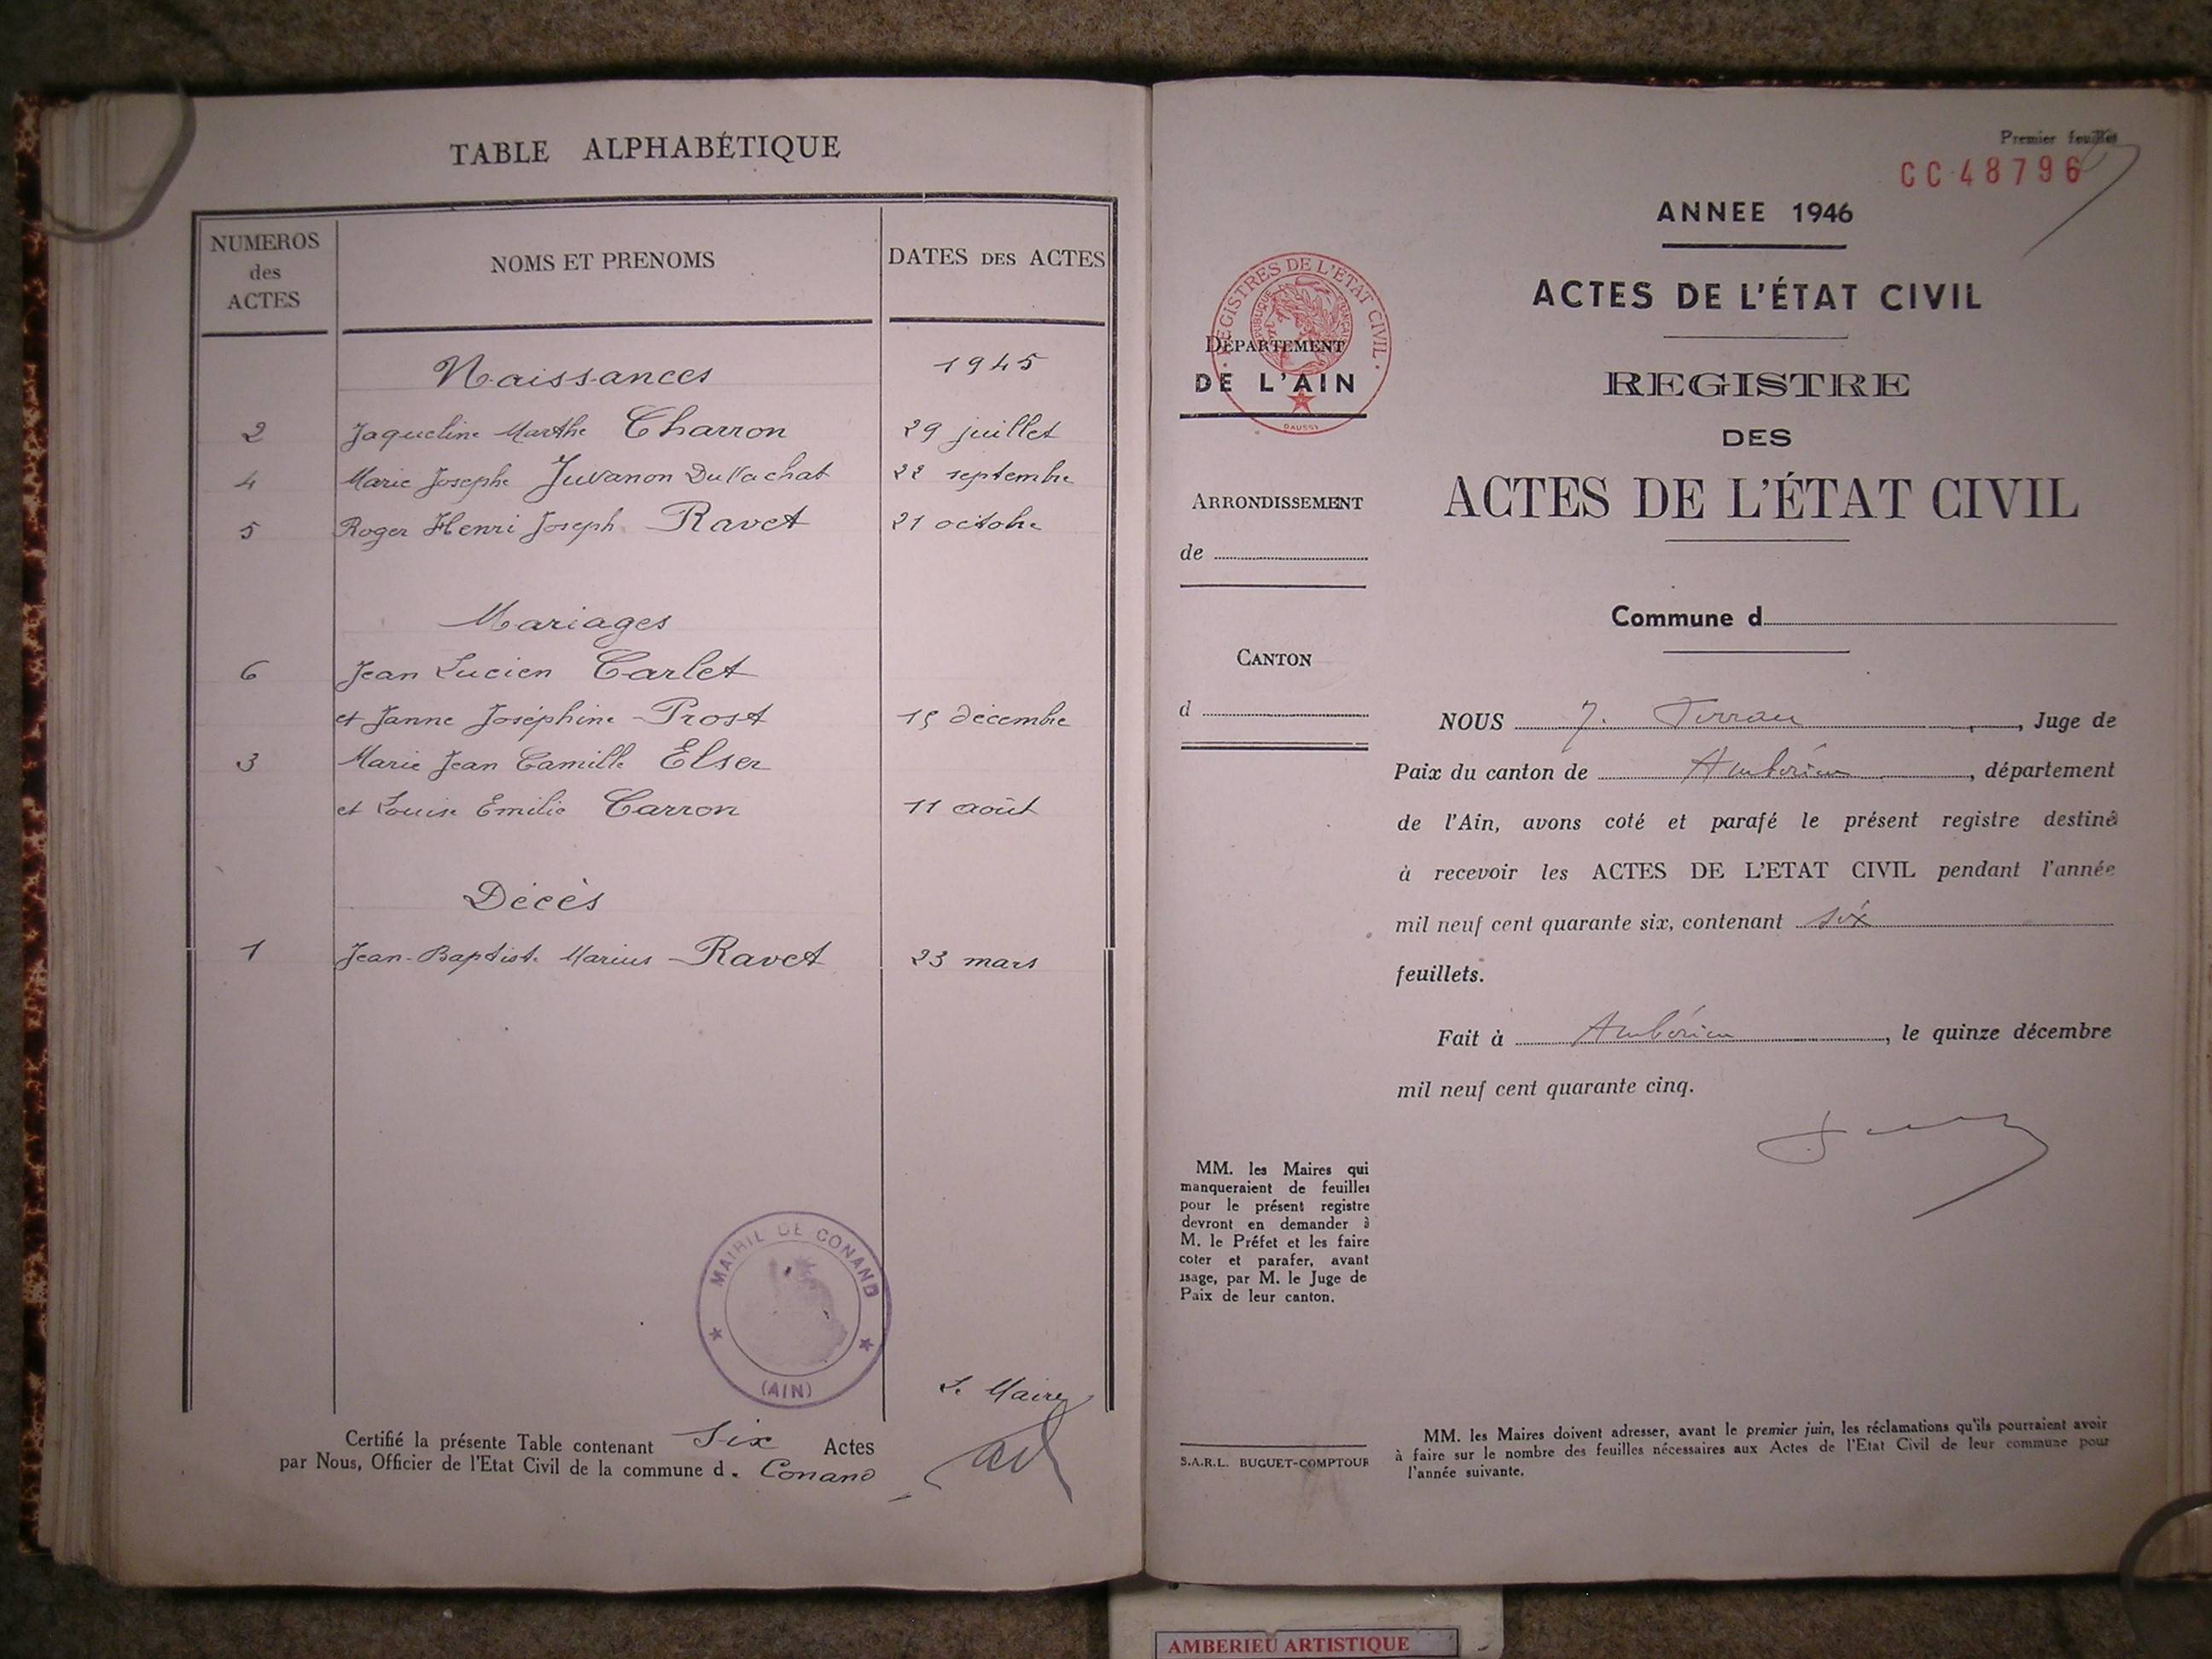 TABLE ALPHABÉTIQUE
NUMEROS
des
ACTES
NOMS ET PRENOMS
DATES DES ACTES
Naissances 1945
2 Jaqueline Marthe Charron 29 juillet
4 Marie Josephe Juvanon Du Vachat 22 septembre
5 Roger Henri Joseph Ravet 21 octobre
Mariages
6 Jean Lucien Carlet
et Janne Joséphine Prost 15 décembre
3 Marie Jean Camille Elser
et Louise Emilie Carron 11 août
Décès
1 Jean-Baptiste Marius Ravet 23 mars
MAIRIE DE CONAND
(AIN)
Le Maire
Certifié la présente Table contenant Six Actes
par Nous, Officier de l'Etat Civil de la commune de Conand
Premier feuillet
CC 48796
ANNEE 1946
ACTES DE L'ÉTAT CIVIL
REGISTRE
DES
ACTES DE L'ÉTAT CIVIL
REGISTRES DE L'ETAT CIVIL
REPUBLIQUE FRANÇAISE
DAUSSY
DÉPARTEMENT
DE L'AIN
ARRONDISSEMENT
de
CANTON
d
Commune d
NOUS J. , Juge de
Paix du canton de Ambérieu, département
de l'Ain, avons coté et parafé le présent registre destiné
à recevoir les ACTES DE L'ETAT CIVIL pendant l'année
mil neuf cent quarante six, contenant six
feuillets.
Fait à Ambérieu, le quinze décembre
mil neuf cent quarante cinq.
MM. les Maires qui
manqueraient de feuilles
pour le présent registre
devront en demander à
M. le Préfet et les faire
coter et parafer, avant
usage, par M. le Juge de
Paix de leur canton.
S.A.R.L. BUGUET-COMPTOUR
MM. les Maires doivent adresser, avant le premier juin, les réclamations qu'ils pourraient avoir
à faire sur le nombre des feuilles nécessaires aux Actes de l'Etat Civil de leur commune pour
l'année suivante.
AMBERIEU ARTISTIQUE